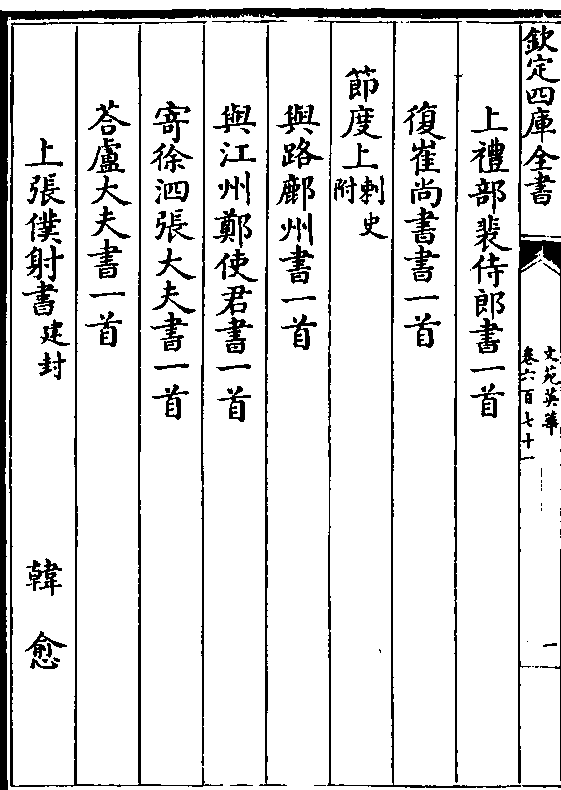 欽定四庫全書
文苑英華
卷六百七十一
一
上禮部裴侍郎書一首
復崔尚書書一首
節度上刺史附
與路鄜州書一首
與江州鄭使君書一首
寄徐泗張大夫書一首
荅盧大夫書一首
上張僕射書建封 韓愈